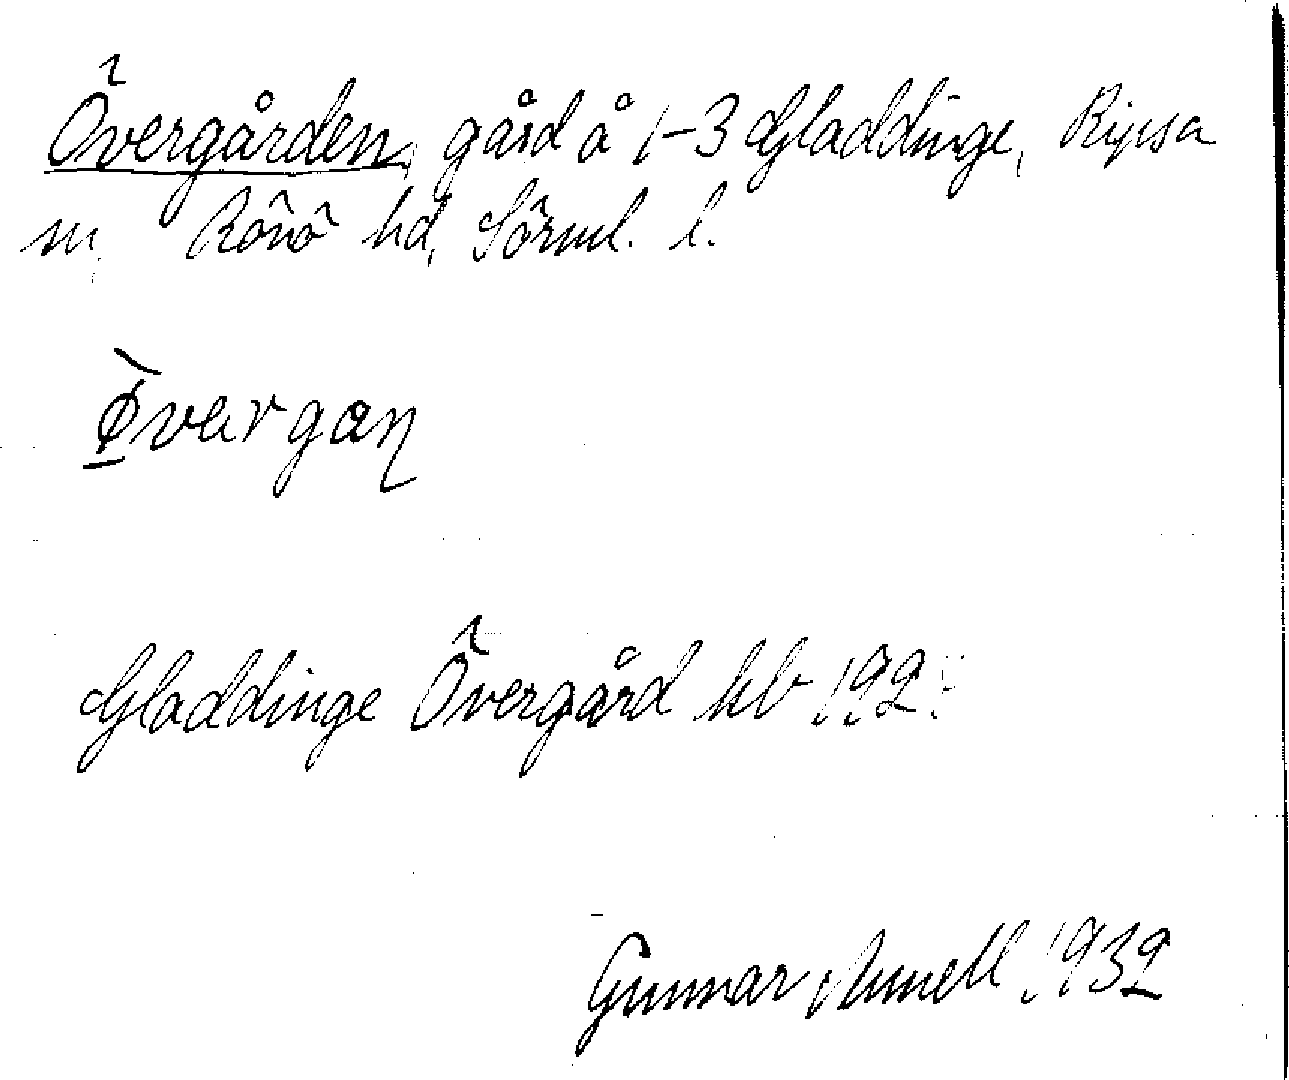 Övergården, gård å 1-3 Gladdinge, Ripsa
sn, Rönö hd, Sörml. l.
Gladdinge Övergård kb 192
Gunnar Amnell 1932